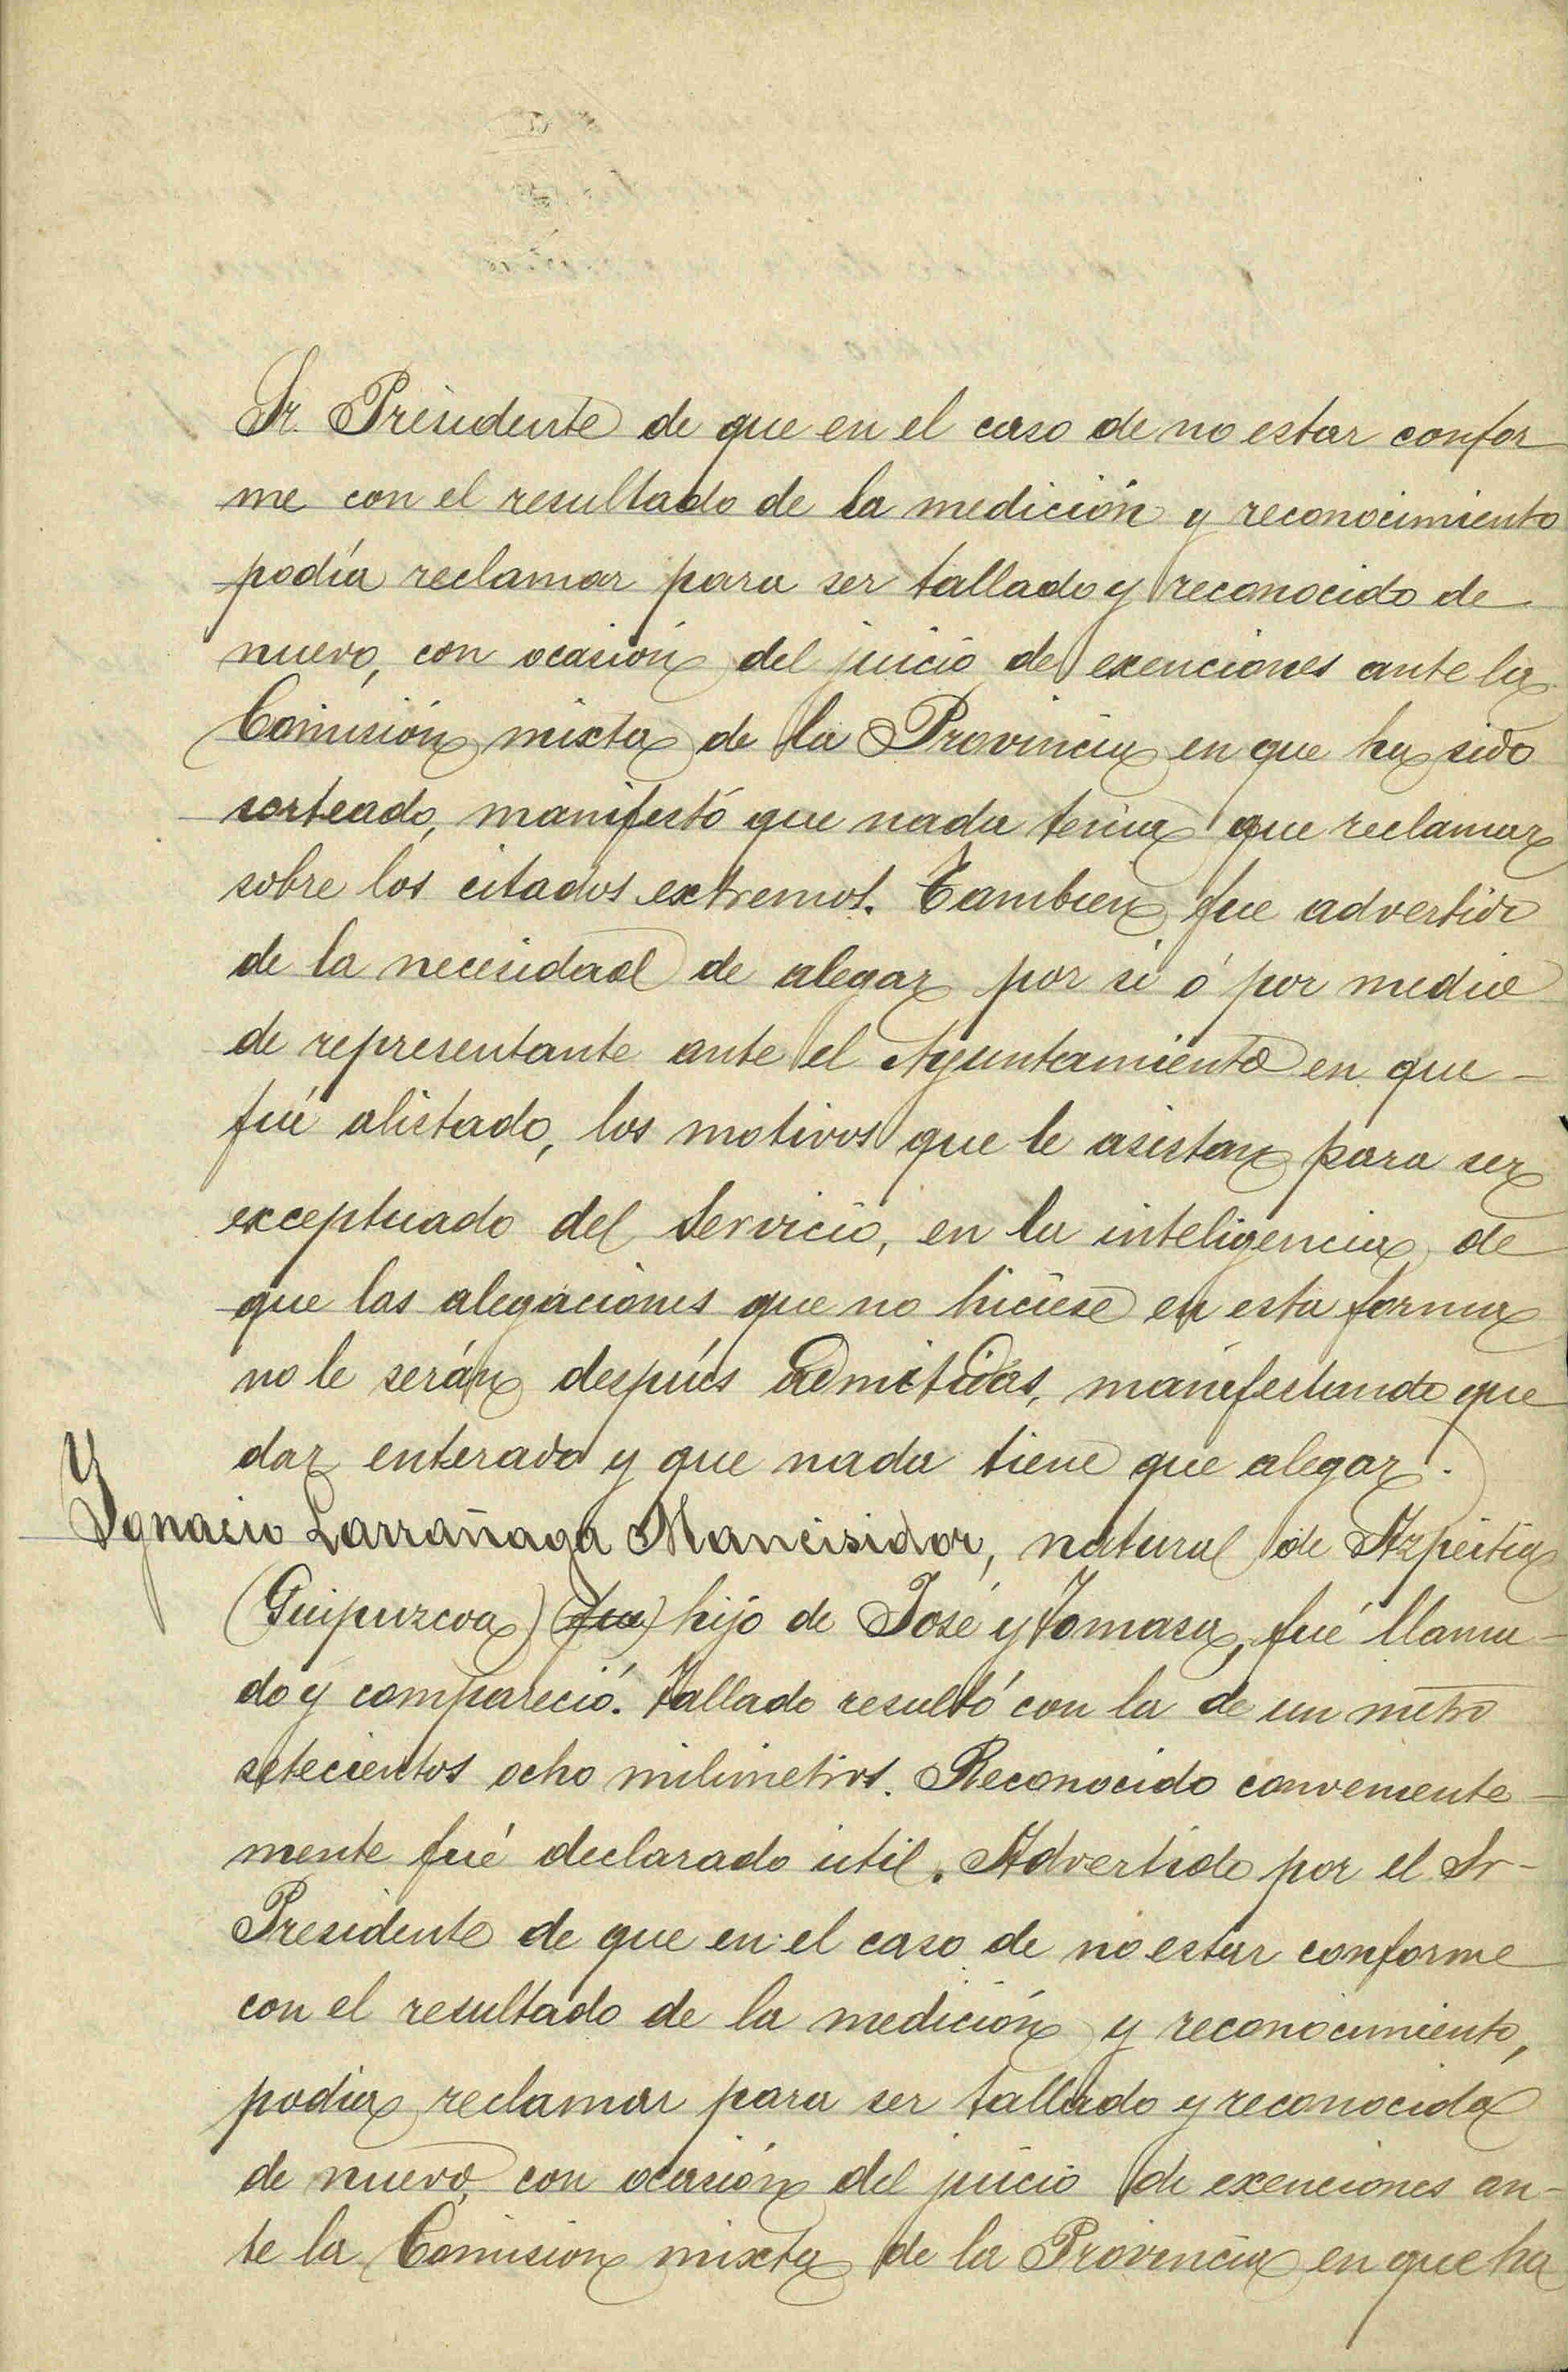 Sr. Presidente de que en el caso de no estar confor
me con el resultado de la medición y reconocimiento
podía reclamar para ser tallado y reconocido de
nuevo, con ocasión del juicio de exenciones ante la
Comisión mixta de la Provincia en que ha sido
sorteado, manifestó que nada tenia que reclamar
sobre los citados extremos. Tambien fue advertido
de la necesidad de alegar por si ó por medio
de representante ante el Ayuntamiento en que-
fué alistado, los motivos que le asistan para ser
exceptuado del Servicio, en la inteligencia de
que las alegaciones que no hiciese en esta forma
no le serán despúes admitidas, manifestando que
dar enterado y que nada tiene que alegar.
Ygnacio Larrañaga Mancisidor, natural de Azpeitia
(Guipuzcoa) (fue) hijo de José y Tomasa, fué llama-
do y compareció. Tallado resultó con la de un metro
setecientos ocho milimetros. Reconocido conveniente-
mente fué declarado útil. Advertido por el Sr-
Presidente de que en el caso de no estar conforme
con el resultado de la medición y reconocimiento,
podia reclamar para ser tallado y reconocido
de nuevo, con ocasión del juicio de exenciones an-
te la Comision mixta de la Provincia en que ha